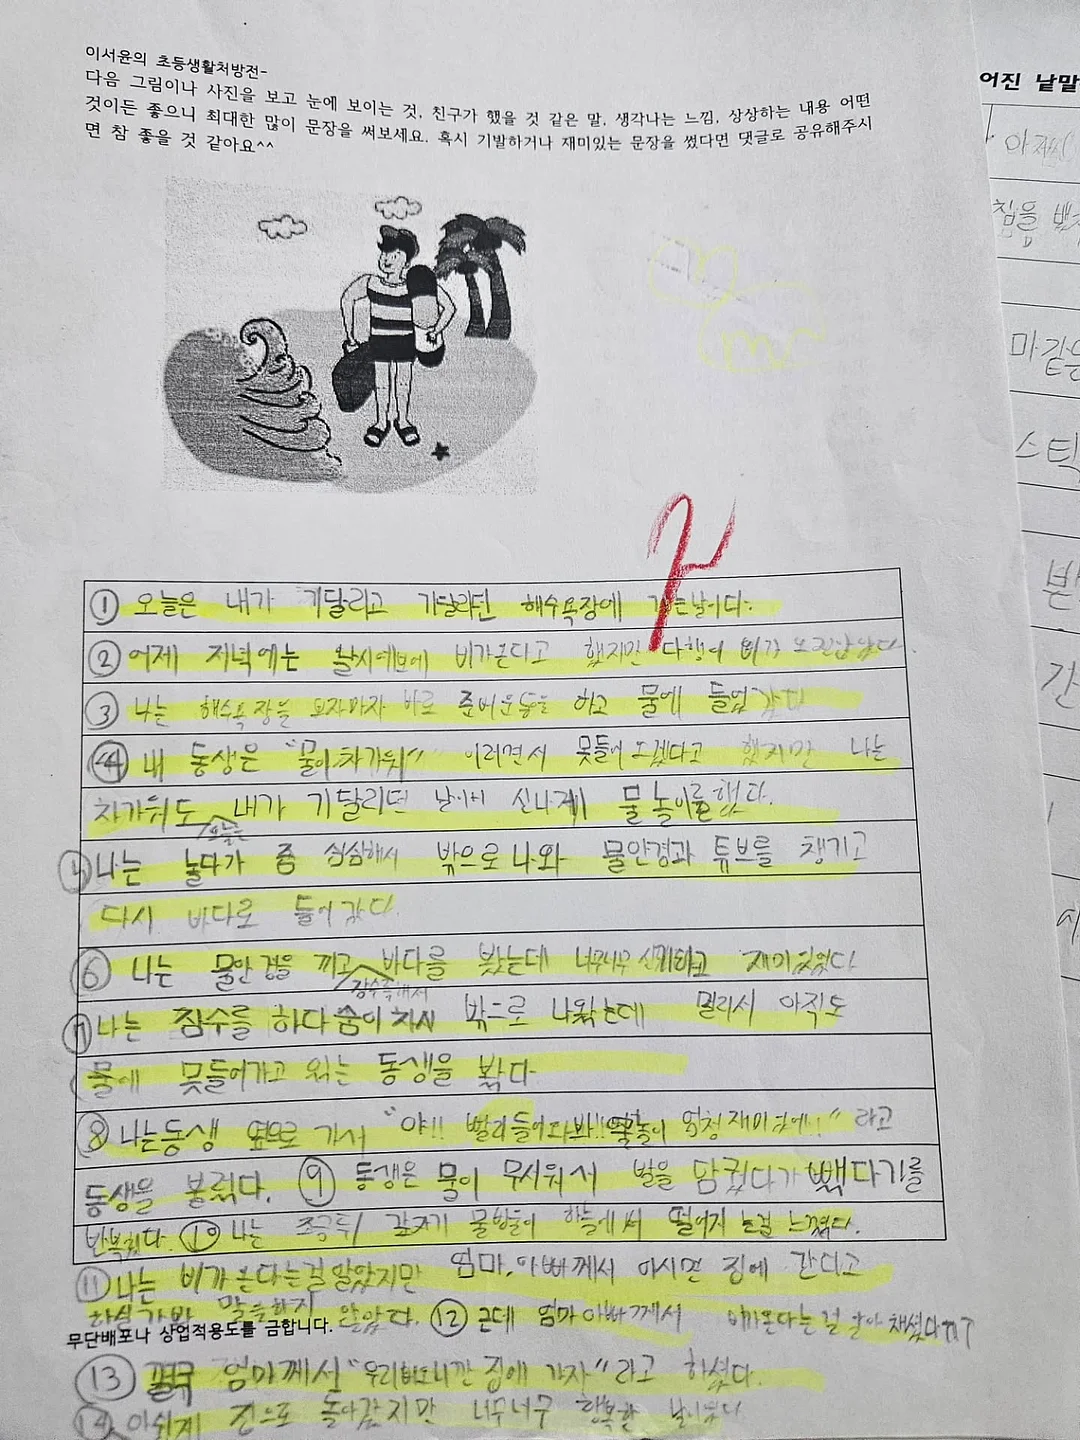 이서윤의 초등생활처방전-
다음 그림이나 사진을 보고 눈에 보이는 것, 친구가 했을 것 같은 말, 생각나는 느낌, 상상하는 내용 어떤
것이든 좋으니 최대한 많이 문장을 써보세요. 혹시 기발하거나 재미있는 문장을 썼다면 댓글로 공유해주시
면 참 좋을 것 같아요^^
① 오늘은 내가 기달리고 기달리던 해수욕장에 가는날이다.
② 어제 저녁에는 날시예보에 비가온다고 했지만 다행이 비가
③ 나는 해수욕장을 오자마자 바로 준비운동을 하고 물에 들어갔다
④ 내 동생은 "물이차가워" 이러면서 못들어 오겠다고 했지만 나는
차가워도 내가 기달리던 날이니 신나게 물놀이를했다.
오늘은
⑤ 나는 놀다가 좀 심심해서 밖으로 나와 물안경과 튜브를 챙기고
다시 바다로 들어갔다.
⑥ 나는 물안경을 끼고 바다를 봤는데 너무너무 신기하고 재미있었다
잠수복에서
⑦ 나는 잠수를 하다 숨이 차서 밖으로 나왔는데 멀리서 아직도
물에 못들어가고 있는 동생을 봤다
⑧ 나는동생 옆으로 가서 "야!! 빨리들어와봐!! 물놀이 엄청재미있어!!" 라고
동생을 불렀다. ⑨ 동생은 물이 무서워서 발을 담궜다가 뺐다기를
반복했다. ⑩ 나는 조금뒤 갑자기 물방울이 하늘에서 떨어지는걸 느꼈다.
⑪ 나는 비가온다는걸알았지만 엄마, 아빠께서 아시면 집에 간다고
하실가봐 말을하지 않았다. ⑫ 근데 엄마아빠께서 비가온다는걸 알아채셨다ㅠㅠ
무단배포나 상업적용도를 금합니다.
⑬ 결국 엄마께서 "우리비오니깐 집에 가자" 라고 하셨다.
⑭ 아쉽게 집으로 돌아갔지만 너무너무 행복한 날이었다
어진 낱말
아저씨
침을
마같은
스틱
받
간